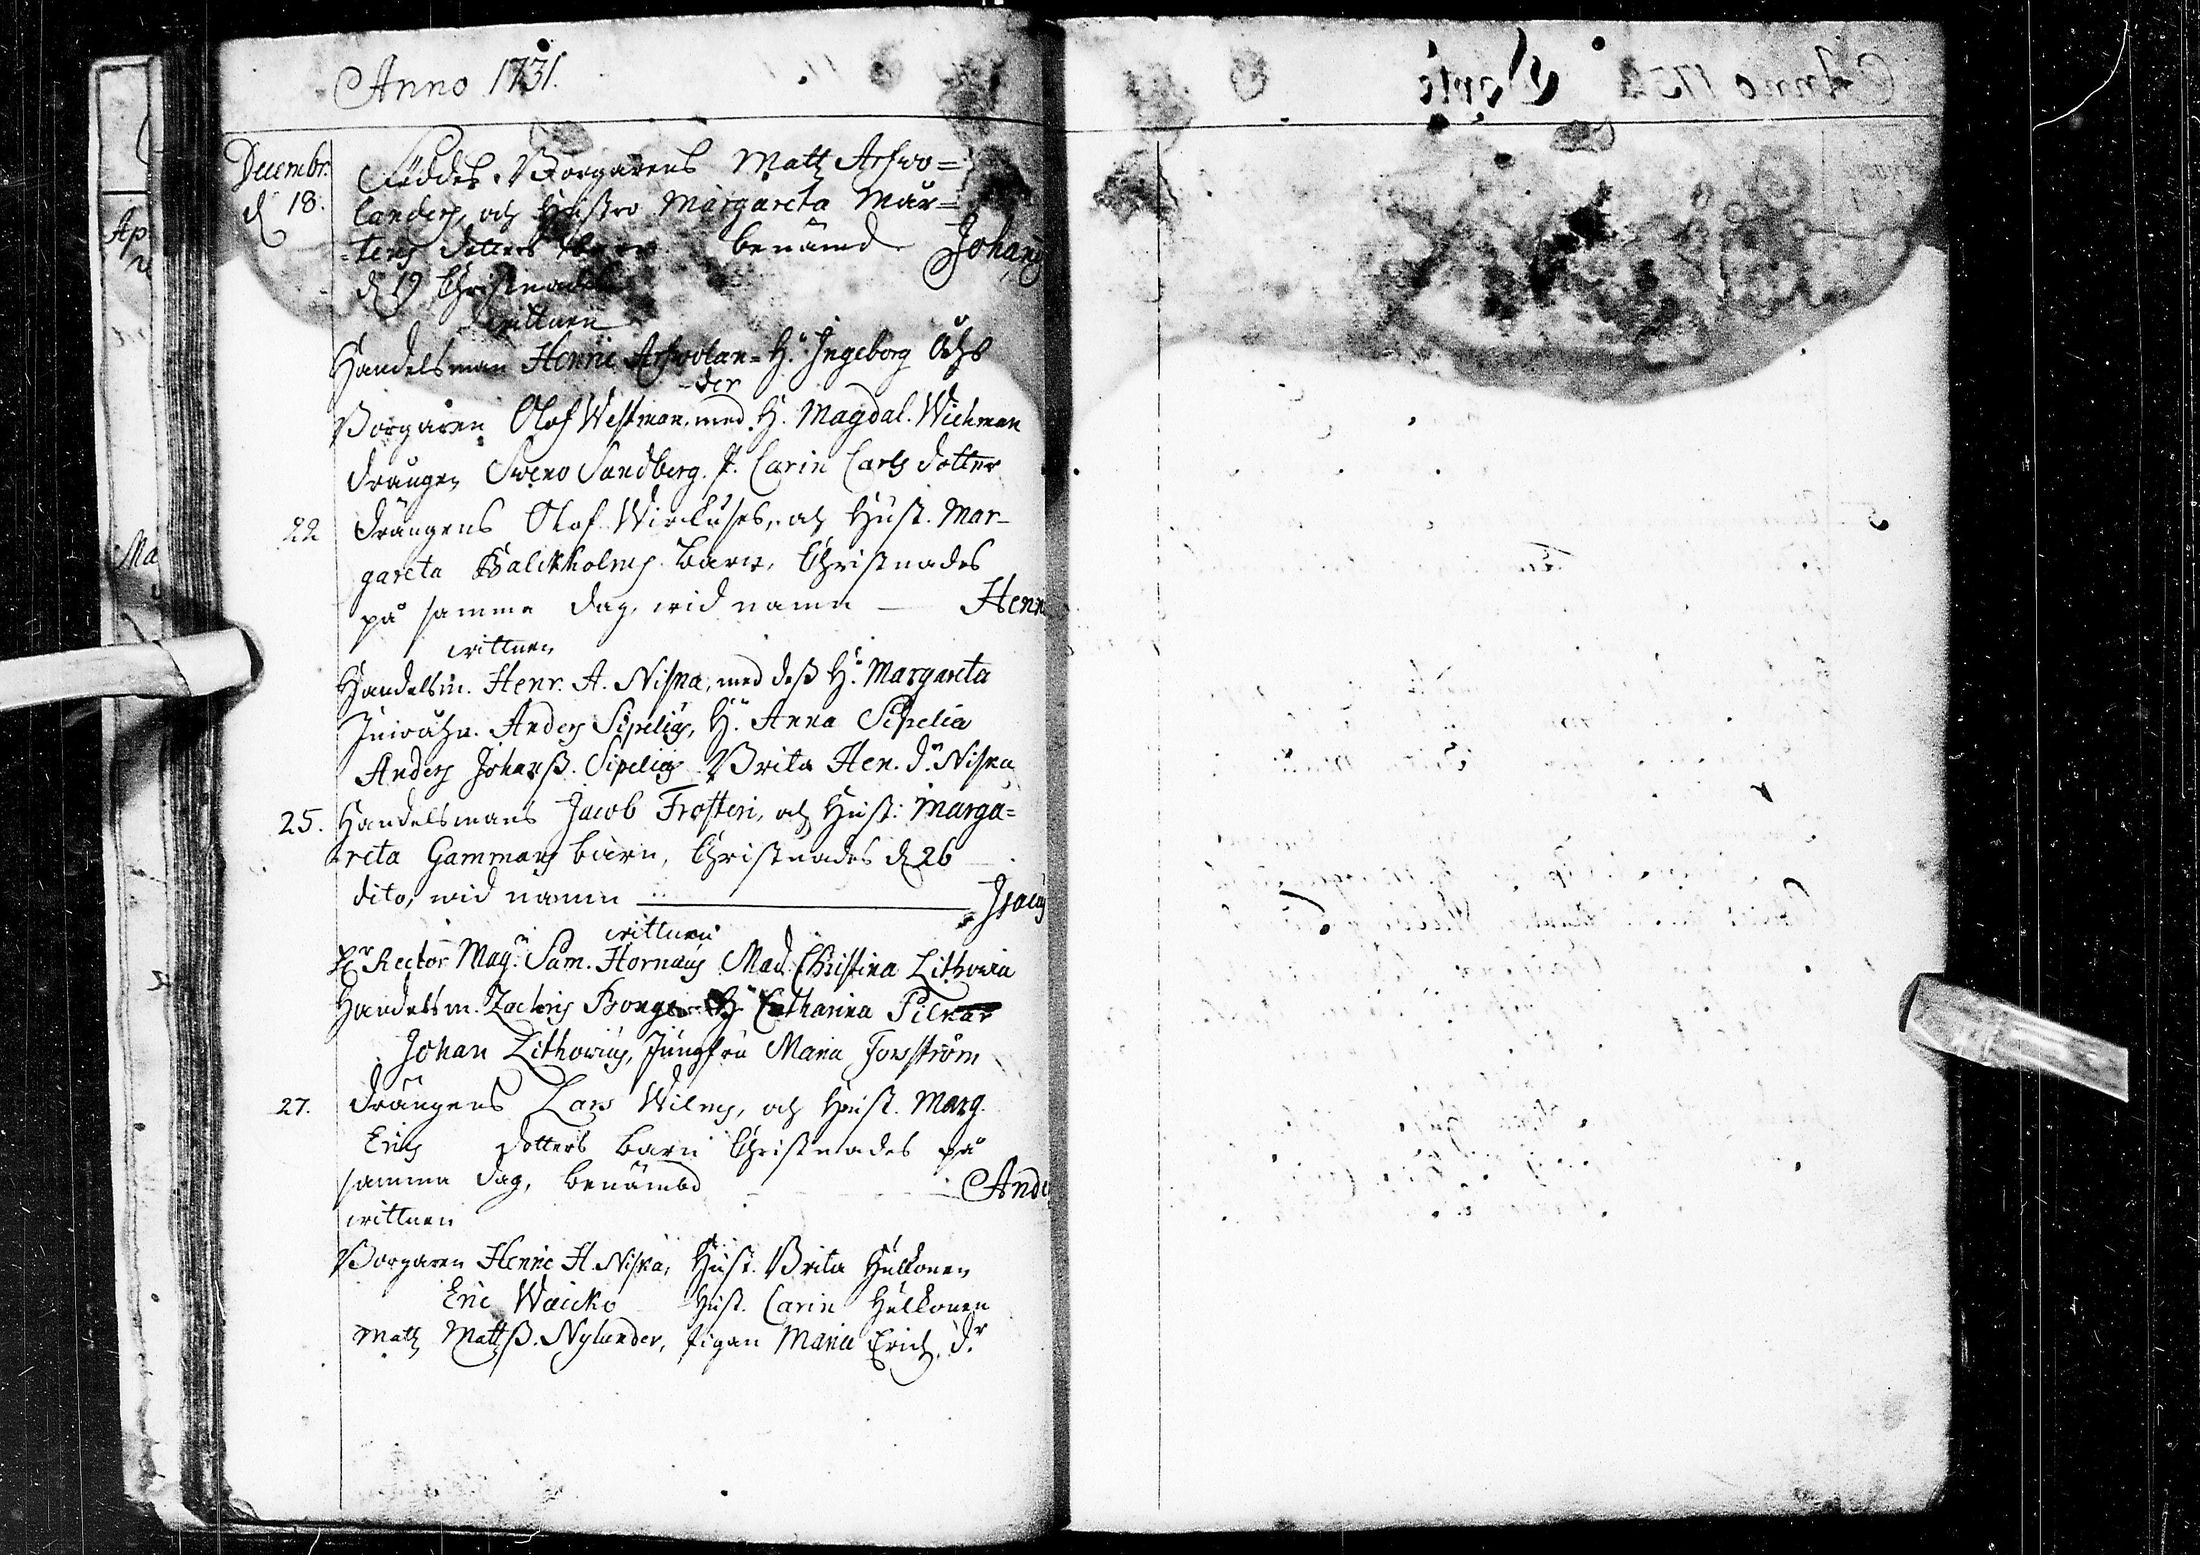 Anno 1731.
Decembr.
d 18.
Föddes Borgarens Matz Arfwo=
landers, och Hustro Margareta Mår=
=tens dotters barn benämd Johans
d 19 Christnades
wittnen
Handelsman Henric Arfwolan= H. Ingeborg
-der
Borgaren Olof Westman, med H. Magdal. Wichman
drängen Sweno Sandberg. P. Carin Carls dotter
22 drängens Olof Wirckuses, och Hust. Mar-
gareta Balckholms barn, Christnades
på samma dag, wid namn — Henr
wittnen
Handelsm. Henr. A. Niska, med dess H. Margareta
Inwåhn. Anders Sipelius, H. Anna Sipelia
Anders Johanss. Sipelius Brita Hen. dr. Niska
25. Handelsmans Jacob Frosteri, och Hust: Marga=
reta Gammals barn, Christnades d 26
dito, wid namn — Isacus
wittnen
Hr Rector Magr. Sam. Hornæus Mad. Christina Lithovia
Handelsm. Zachris Borg H. Catharina
Johan Lithovius, Jungfru Maria Forsström
27. drängens Lars Wilms, och Hust. Marg.
Erics dotters barn Christnades på
samma dag, benämbd — Ande
wittnen
Borgaren Henric H. Niska, Hust. Brita Hulkonen
Eric Waicko Hust. Carin Hulkonen
Matz Mattss. Nylander, Pigan Maria Erich. dr
Ap
Ma
Anno 1732